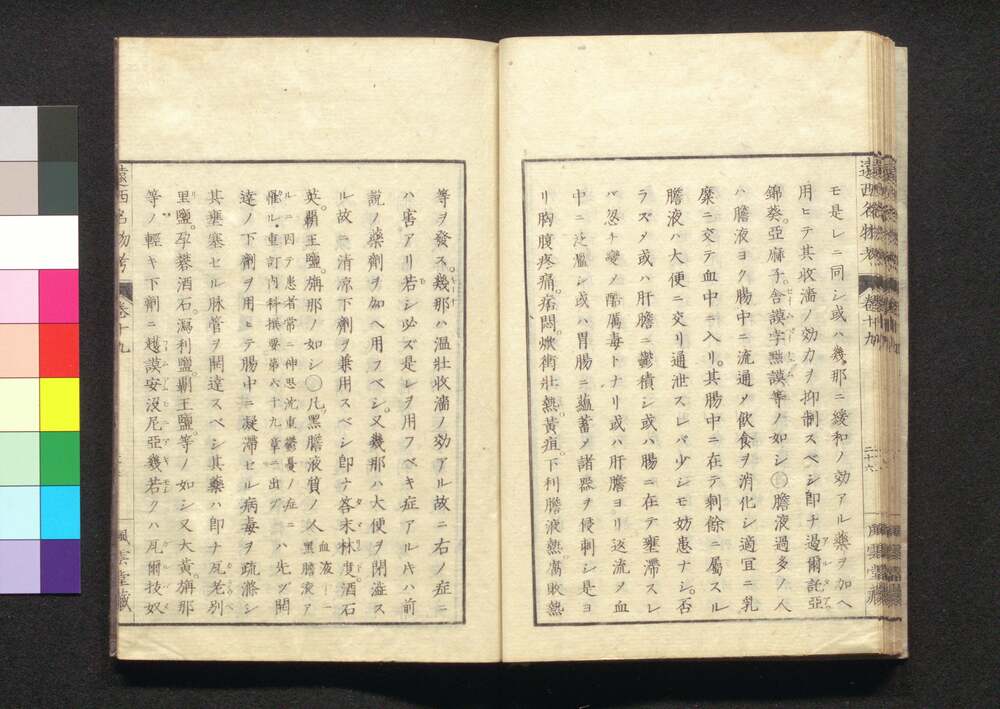 モ是レニ同シ或ハ幾那ニ緩和ノ効アル藥ヲ加ヘ
用ヒテ其收濇ノ効力ヲ抑制スベシ即チ過爾託亞
錦葵。亞麻子。舎謨孛無謨等ノ如シ〇膽液過多ノ人
ハ膽液ヨク腸中ニ流通メ飲食ヲ消化シ適宜ニ乳
糜ニ交テ血中ニ入リ。其腸中ニ在テ剩餘ニ屬スル
膽液ハ大便ニ交リ通泄スレバ少シモ妨患ナシ。否
ラズメ或ハ肝膽ニ鬱積シ或ハ腸ニ在テ壅滯スレ
バ忽チ變メ酷厲毒トナリ或ハ肝膽ヨリ逆流メ血
中ニ泛濫シ或ハ胃腸ニ蘊蓄メ諸器ヲ侵刺シ是ヨ
リ胸腹疼痛。痞悶。焮衝壯熱。黃疸。下利膽液熱腐敗熱
遠西名物考
卷十九
二十六
風雲堂藏
等ヲ發ス。幾那ハ溫壯收濇ノ効アル故ニ右ノ症ニ
ハ害アリ若シ必ズ是レヲ用フベキ症アル片ハ前
說ノ藥劑ヲ加ヘ用フベシ。又幾那ハ大便ヲ閉濇ス
ル故ニ清凉下劑ヲ兼用スベシ即チ荅末林度酒石
英。覇王鹽。旃那ノ如シ〇凡黑膽液質ノ人 黑膽液ア
ルニ因テ患者常ニ神思沈重鬱憂ノ症ニ
罹ル・重訂内科撰要第六十九章ニ出ヅ ハ先ヅ開
達ノ下劑ヲ用ヒテ腸中ニ凝滯セル病毒ヲ疏滌シ
其壅塞セル脉管ヲ開達スベシ其藥ハ即チ瓦老別
里鹽。孕礬酒石。瀉利鹽。覇王鹽等ノ如シ又大黃旃那
等ノ輕キ下劑ニ越謨安沒尼亞幾若クハ瓦爾抜奴
遠西名物考
卷十九
風雲堂藏